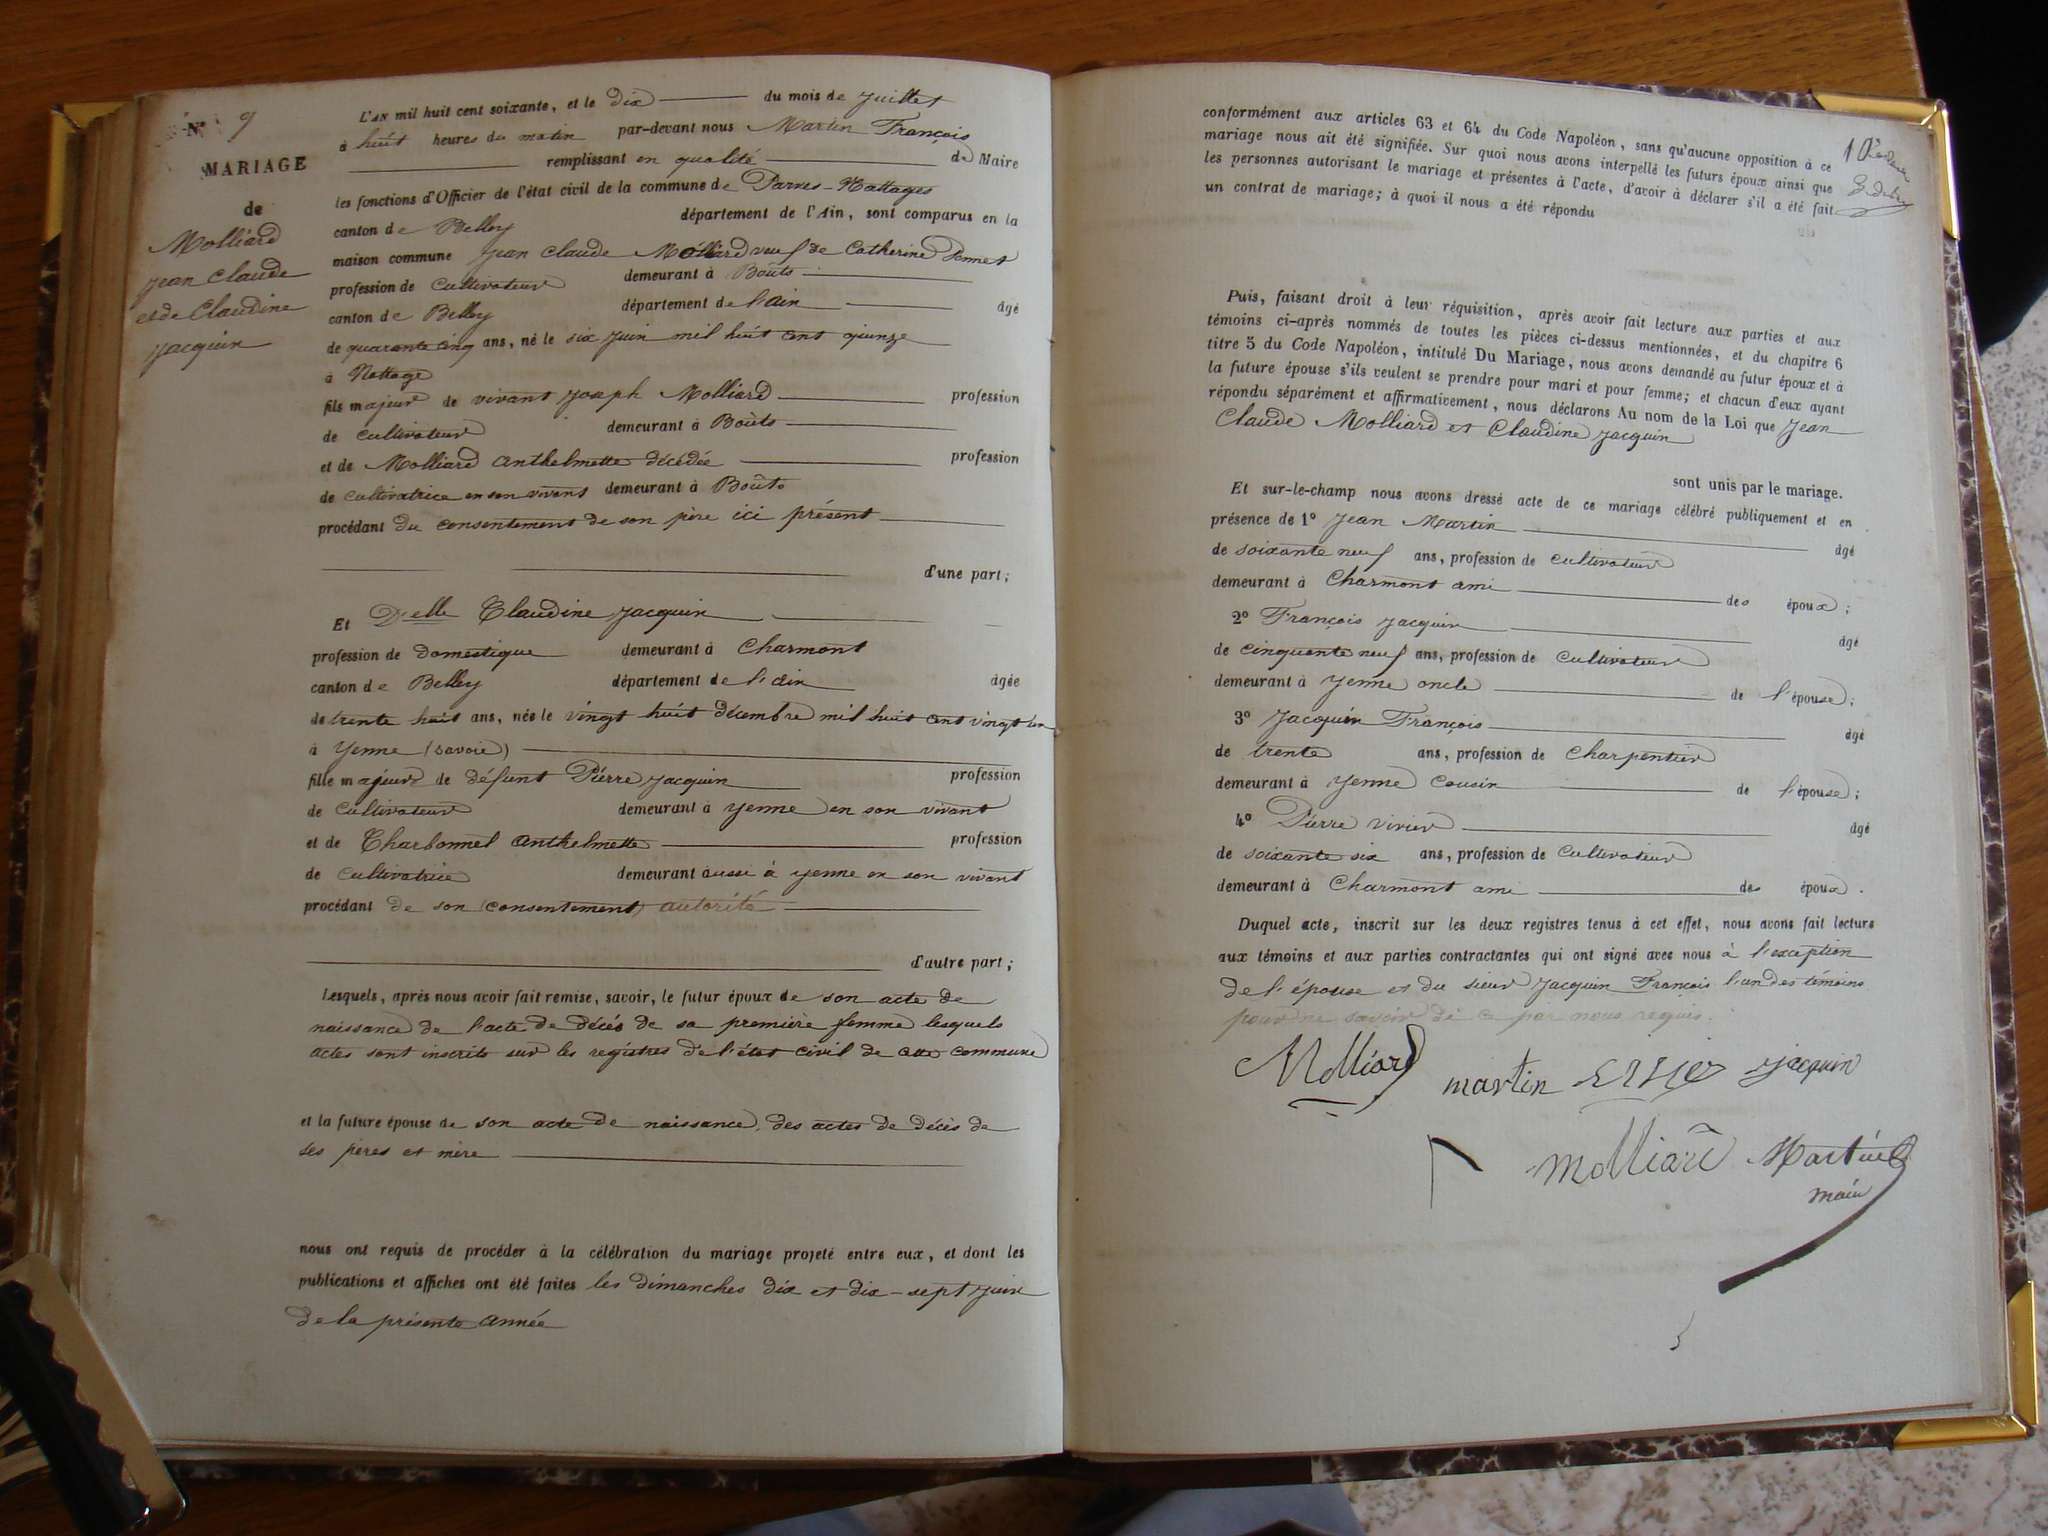 N° 9
MARIAGE
de
Molliard
Jean Claude
et de Claudine
Jacquin
L'AN mil huit cent soixante, et le dix du mois de Juillet
à huit heures du matin par-devant nous Martin François
remplissant en qualité de Maire
les fonctions d'Officier de l'état civil de la commune de Parves-Nattages
canton de Belley département de l'Ain, sont comparus en la
maison commune Jean Claude Molliard veuf de Catherine Ponnet
profession de Cultivateur demeurant à Boûts
canton de Belley département de l'ain âgé
de quarante cinq ans, né le six Juin mil huit cent quinze
à Nattage
fils majeur de vivant Joseph Molliard profession
de Cultivateur demeurant à Boûts
et de Molliard anthelmette décédée profession
de cultivatrice en son vivant demeurant à Boûts
procédant du consentement de son père ici présent
d'une part;
Et Delle Claudine Jacquin
profession de domestique demeurant à Charmont
canton de Belley département de l'ain âgée
de trente huit ans, née le vingt huit décembre mil huit cent vingt un
à Yenne (Savoie)
fille majeure de défunt Pierre Jacquin profession
de Cultivateur demeurant à Yenne en son vivant
et de Charbonnel anthelmette profession
de Cultivatrice demeurant aussi à Yenne en son vivant
procédant de son (consentement) autorité
d'autre part;
Lesquels, après nous avoir fait remise, savoir, le futur époux de son acte de
naissance de l'acte de décès de sa première femme lesquels
actes sont inscrits sur les registres de l'état civil de cette commune
et la future épouse de son acte de naissance, des actes de décès de
ses pères et mère
nous ont requis de procéder à la célébration du mariage projeté entre eux, et dont les
publications et affiches ont été faites les dimanches dix et dix-sept Juin
de la présente année
10
conformément aux articles 63 et 64 du Code Napoléon, sans qu'aucune opposition à ce
mariage nous ait été signifiée. Sur quoi nous avons interpellé les futurs époux ainsi que
les personnes autorisant le mariage et présentes à l'acte, d'avoir à déclarer s'il a été fait
un contrat de mariage; à quoi il nous a été répondu
Puis, faisant droit à leur réquisition, après avoir fait lecture aux parties et aux
témoins ci-après nommés de toutes les pièces ci-dessus mentionnées, et du chapitre 6
titre 5 du Code Napoléon, intitulé Du Mariage, nous avons demandé au futur époux et à
la future épouse s'ils veulent se prendre pour mari et pour femme; et chacun d'eux ayant
répondu séparément et affirmativement, nous déclarons Au nom de la Loi que Jean
Claude Molliard et Claudine Jacquin
sont unis par le mariage.
Et sur-le-champ nous avons dressé acte de ce mariage célébré publiquement et en
présence de 1° Jean Martin âgé
de soixante neuf ans, profession de Cultivateur
demeurant à Charmont ami des époux;
2° François Jacquin âgé
de cinquante neuf ans, profession de Cultivateur
demeurant à Yenne oncle de l'épouse;
3° Jacquin François âgé
de trente ans, profession de Charpentier
demeurant à Yenne Cousin de l'épouse;
4° Pierre vivier âgé
de soixante six ans, profession de Cultivateur
demeurant à Charmont ami des époux.
Duquel acte, inscrit sur les deux registres tenus à cet effet, nous avons fait lecture
aux témoins et aux parties contractantes qui ont signé avec nous à l'exception
de l'épouse et du sieur Jacquin François l'un des témoins
pour ne savoir de ce par nous requis.
Molliard martin Jacquin
molliard Martin
maire